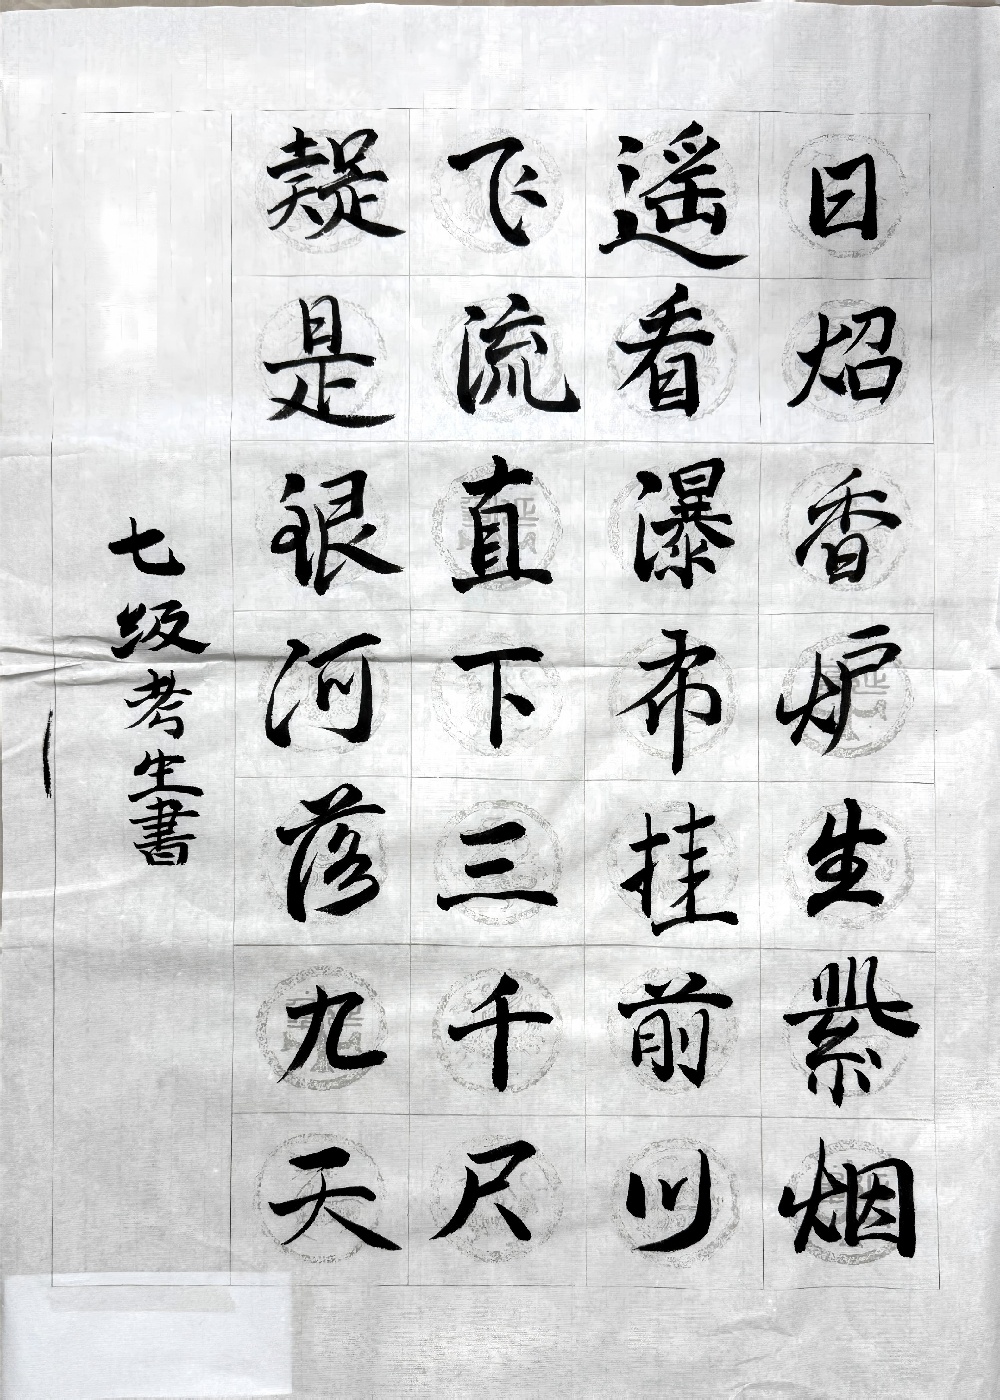 日炤香炉生紫烟
遥看瀑布挂前川
飞流直下三千尺
疑是银河落九天
七级考生書